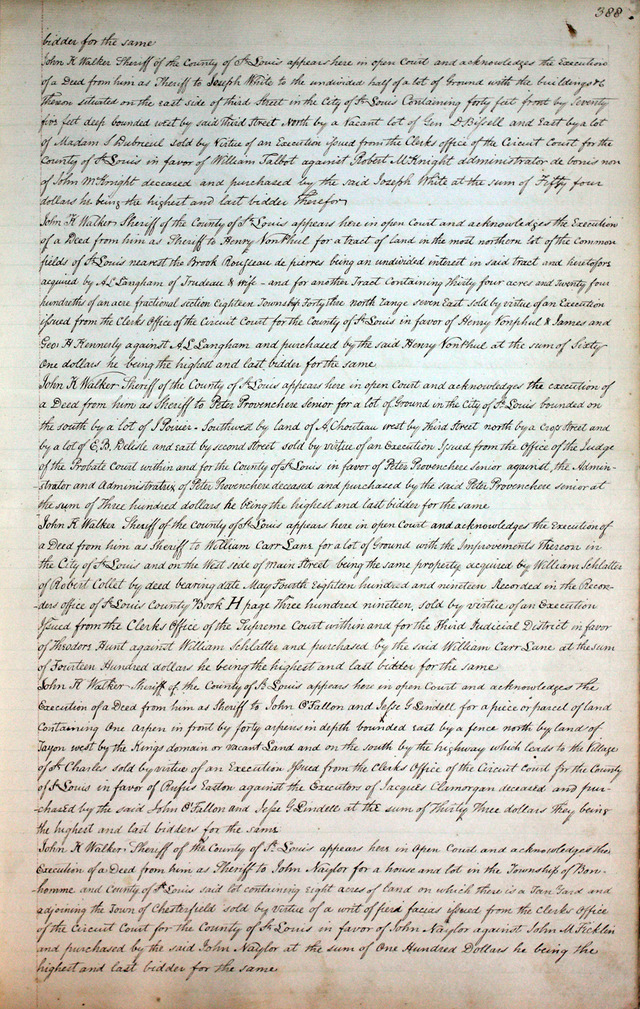 388
bidder for the same
John K Walker Sheriff of the County of St Louis appears here in open Court and acknowledges the Execution
of a Deed from him as Sheriff to Joseph White to the undivided half of a lot of Ground with the buildings &
thereon situated on the east side of third Street in the City of St Louis Containing forty feet front by Seventy
five feet deep bounded west by said third Street North by a Vacant lot of Gen D Bissell and East by a lot
of Madam S Dubreuil sold by Virtue of an Execution issued from the Clerks office of the Circuit Court for the
County of St Louis in favor of William Talbot against Robert McKnight administrator de bonis non
of John McKnight deceased and purchased by the said Joseph White at the sum of Fifty four
dollars he being the highest and last bidder therefor
John K Walker Sheriff of the County of St Louis appears here in open Court and acknowledges the Execution
of a Deed from him as Sheriff to Henry VonPhul for a tract of land in the most northern lot of the Common
fields of St Louis nearest the Brook Rousseau de pierres being an undivided interest in said tract and heretofore
acquired by A L Langham of Trudeau & wife - and for another Tract Containing thirty four acres and Twenty four
hundreths of an acre fractional section Eighteen Township Forty three north range seven East sold by virtue of an Execution
issued from the Clerks Office of the Circuit Court for the County of St Louis in favor of Henry Vonphul & James and
Geo H Kennerly against A L Langham and purchased by the said Henry VonPhul at the sum of Sixty
One dollars he being the highest and last bidder for the same
John K Walker Sheriff of the County of St Louis appears here in open Court and acknowledges the execution of
a Deed from him as Sheriff to Peter Provenchere senior for a lot of Ground in the City of St Louis bounded on
the south by a lot of J Poirier - Southwest by land of A Chouteau west by Third Street north by a Cross street and
by a lot of E, B, Delisle and East by second street sold by virtue of an Execution Issued from the Office of the Judge
of the Probate Court within and for the County of St Louis in favor of Peter Provenchere senior against, the Admin-
strator and Administratrix of Peter Provenchere deceased and purchased by the said Peter Provenchere senior at
the sum of Three hundred dollars he being the highest and last bidder for the same
John K Walker Sheriff of the County of St Louis appears here in open Court and acknowledges the Execution of
a Deed from him as Sheriff to William Carr Lane for a lot of Ground with the Improvements thereon in
the City of St Louis and on the West side of main Street being the same property acquired by William Schlatter
of Robert Collet by deed bearing date May Fourth Eighteen hundred and nineteen Recorded in the Recor-
ders office of St Louis County Book H page Three hundred nineteen, sold by virtue of an Execution
Issued from the Clerks Office of the Supreme Court within and for the Third Judicial District in favor
of Theodore Hunt against William Schlatter and purchased by the said William Carr Lane at the sum
of Fourteen Hundred dollars he being the highest and last bidder for the same
John K Walker Sheriff of the County of St Louis appears here in open Court and acknowledges the
Execution of a Deed from him as Sheriff to John O'Fallon and Jesse G Lindell for a piece or parcel of land
Containing One Arpen in front by forty arpens in depth bounded east by a fence north by land of
Tayon west by the Kings domain or vacant Land and on the south by the highway which leads to the Village
of St Charles sold by virtue of an Execution Issued from the Clerks Office of the Circuit Court for the County
of St Louis in favor of Rufus Easton against the Executors of Jacques Clamorgan deceased and pur-
chased by the said John O'Fallon and Jesse G Lindell at the sum of Thirty Three dollars they being
the highest and last bidders for the same
John K Walker Sheriff of the County of St Louis appears here in Open Court and acknowledges the
Execution of a Deed from him as Sheriff to John Naylor for a house and lot in the Township of Bon-
homme and County of St Louis said lot containing eight acres of land on which there is a Tan Yard and
adjoining the Town of Chesterfield sold by virtue of a writ of fieri facias issued from the Clerks Office
of the Circuit Court for the County of St Louis in favor of John Naylor against John M Ficklin
and purchased by the said John Naylor at the sum of One Hundred Dollars he being the
highest and last bidder for the same